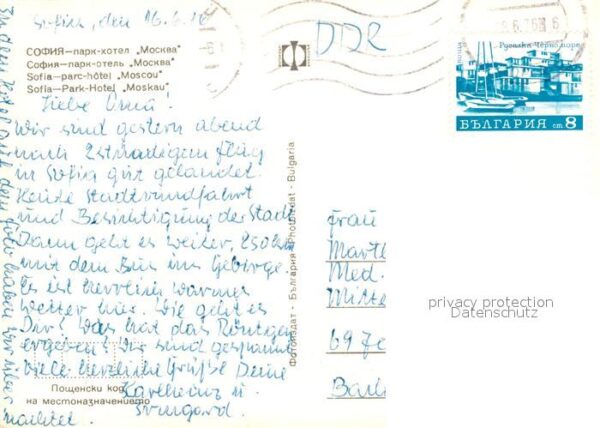 Sofia, den 16.6.76
DDR
СОФИЯ—парк-хотел „Москва“
София—парк-отель „Москва“
Sofia—parc-hôtel „Moscou“
Sofia—Park-Hotel „Moskau“
Liebe Oma!
Wir sind gestern abend
nach 2stündigem Flug
in Sofia gut gelandet.
Heute Stadtrundfahrt
und Besichtigung der Stadt
Dann geht es weiter, 250 km
mit dem Bus ins Gebirge.
Es ist herrlich warmes
Wetter hier. Wie geht es
Dir? Was hat das Röntgen
ergeben? Wir sind gespannt
viele herzliche Grüße Deine
Karlheinz u.
Irmgard.
In dem Hotel auf dem Foto haben wir über
nachtet.
Пощенски код
на местоназначението
Фотоиздат - България - Photoizdat - Bulgaria
поща
Русалка Черно море
БЪЛГАРИЯ ст 8
Frau
Marth
Med.
Mitte
69 Je
Bach
privacy protection
Datenschutz